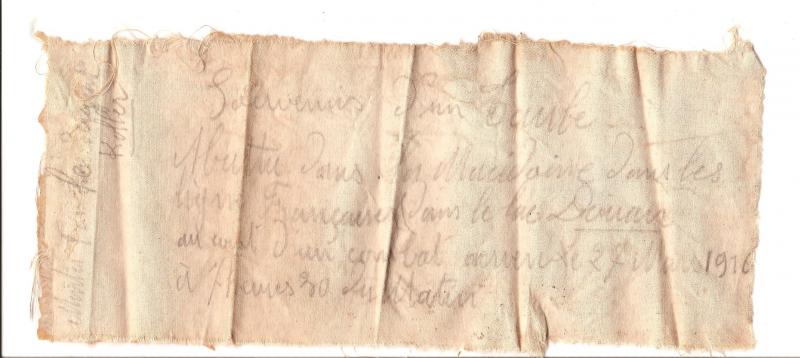 Souvenirs d'un Taube
Abattu dans la Macédoine dans les
lignes Françaises dans le lac Doiran
au cours d'un combat aérien le 27 Mars 1916
à heures 30 du Matin